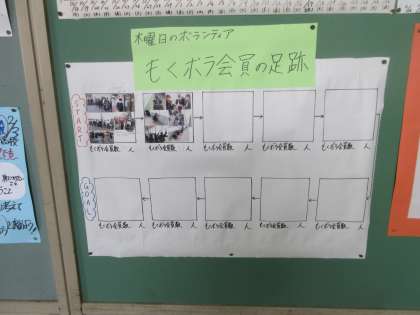 木曜日のボランティア
もくボラ会員の足跡
START
もくボラ会員数 人
もくボラ会員数 人
もくボラ会員数 人
もくボラ会員数 人
もくボラ会員数 人
GOAL
もくボラ会員数 人
もくボラ会員数 人
もくボラ会員数 人
もくボラ会員数 人
もくボラ会員数 人